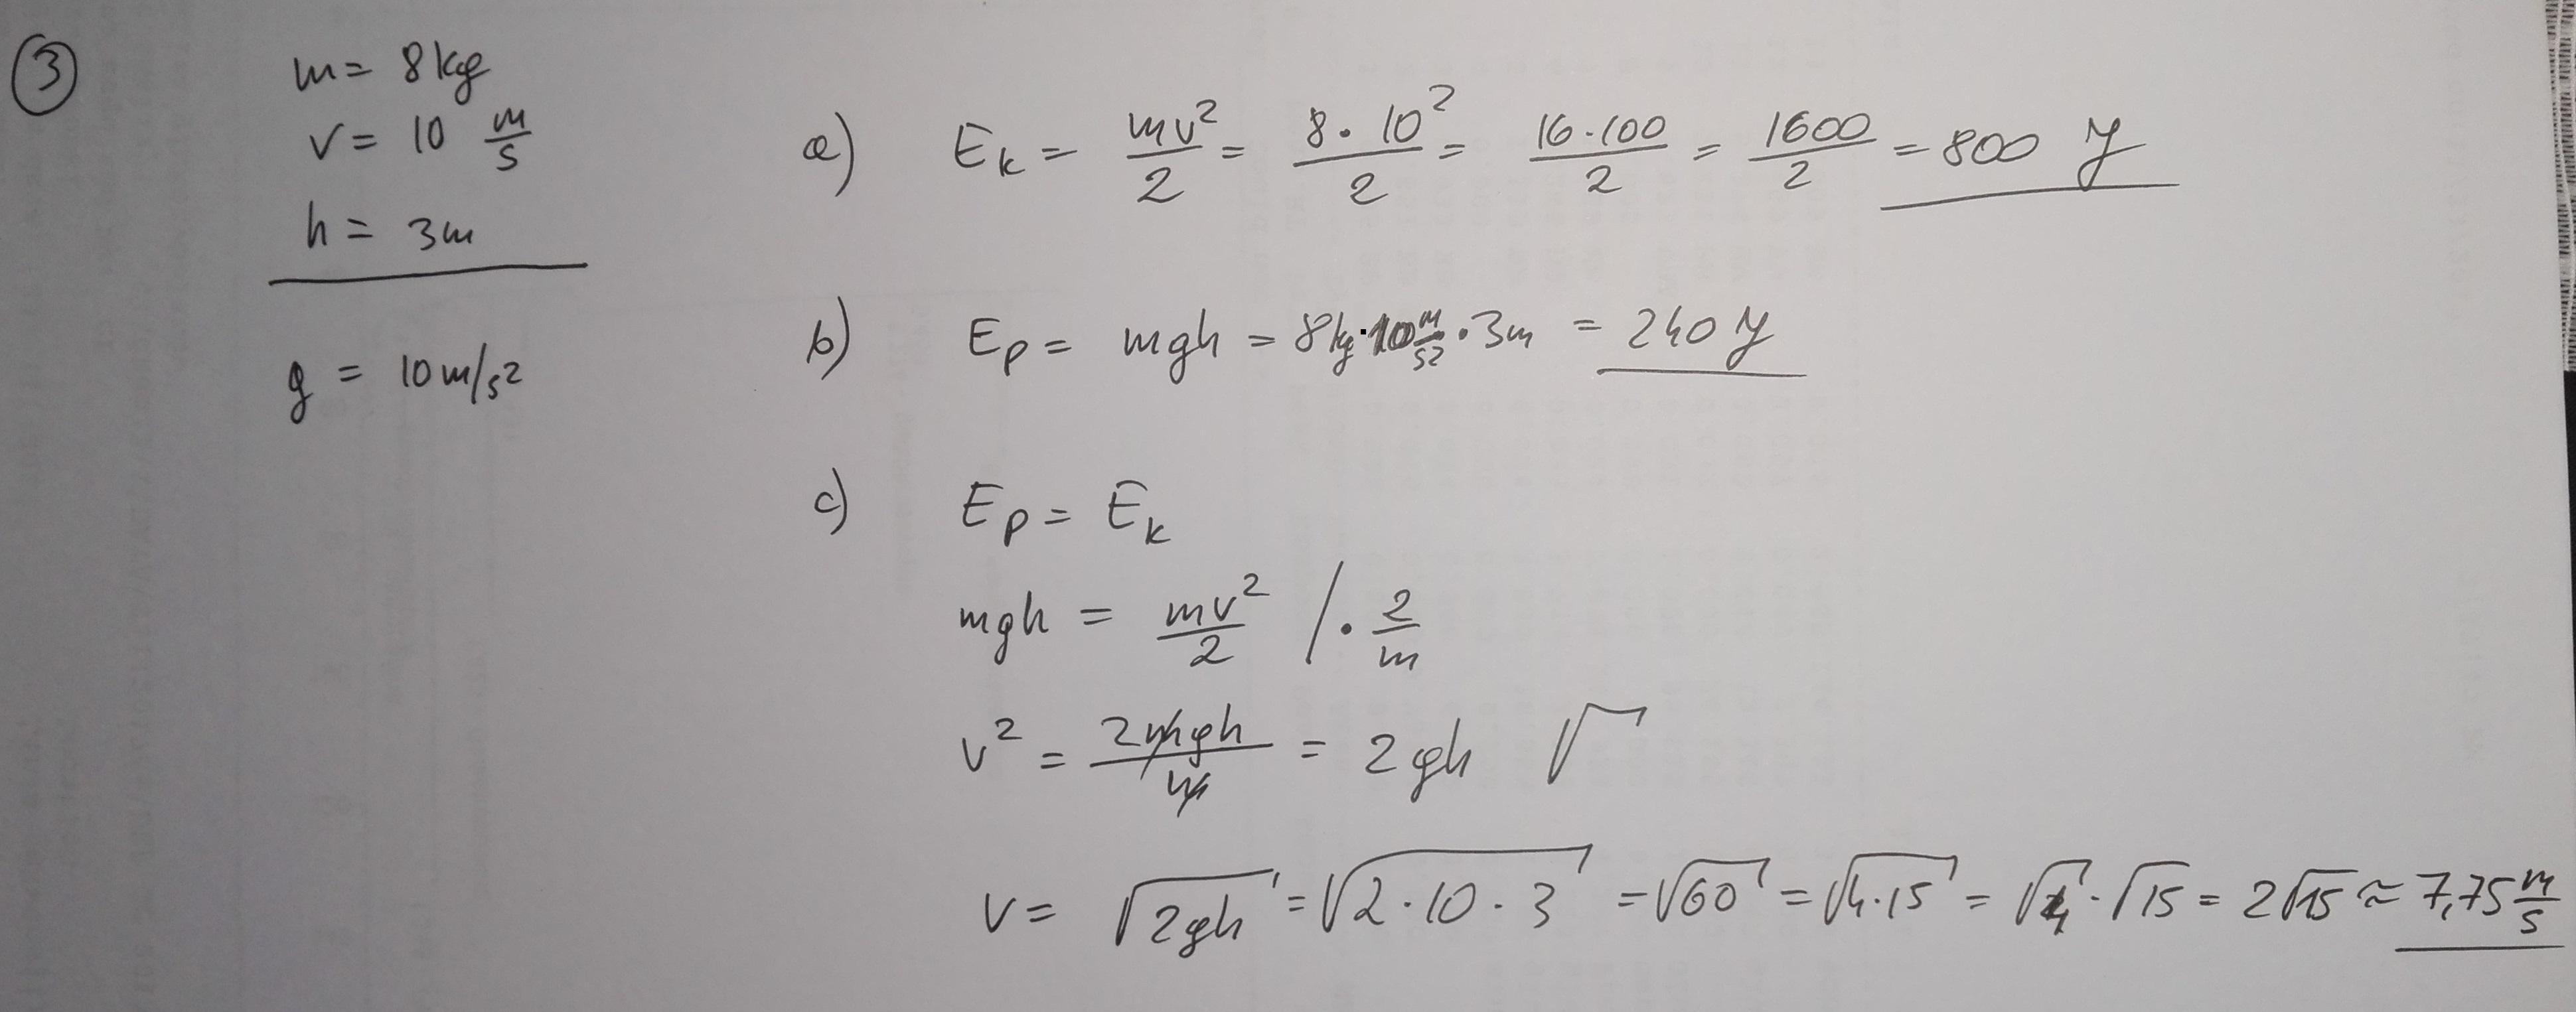 ③
m = 8 kg
v = 10 m/s
h = 3m
g = 10 m/s²
a) Eₖ = mv²/2 = 8 · 10²/2 = 16·100/2 = 1600/2 = 800 J
b) Eₚ = mgh = 8kg · 10 m/s² · 3m = 240 J
c) Eₚ = Eₖ
mgh = mv²/2 / · 2/m
v² = 2mgh/m = 2gh √
v = √2gh = √2·10·3 = √60 = √4·15 = √4 · √15 = 2√15 ≈ 7,75 m/s